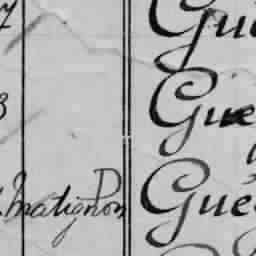 7 Gue
3 Gue
Matignon Gue